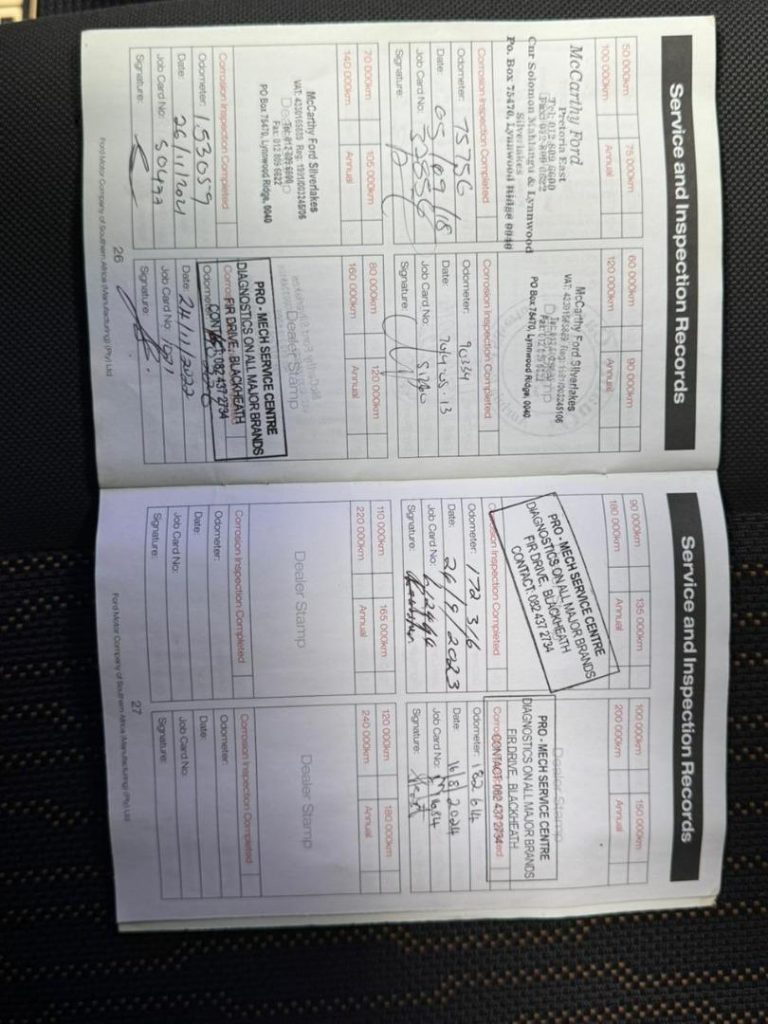 Service and Inspection Records
50 000km 75 000km
100 000km Annual
McCarthy Ford
Pretoria East
Tel: 012 809 6600
Cnr Solomon Mahlangu & Lynnwood
Silverlakes
Po. Box 75470, Lynnwood Ridge 0040
Corrosion Inspection Completed
Odometer: 75756
Date: 05/09/18
Job Card No: 32856
Signature:
60 000km 90 000km
120 000km Annual
McCarthy Ford Silverlakes
PO Box 75470, Lynnwood Ridge, 0040
Corrosion Inspection Completed
Odometer: 90334
Date:
Job Card No:
Signature:
70 000km 105 000km
140 000km Annual
McCarthy Ford Silverlakes
Tel: 012 809 6600
Fax: 012 809 6622
PO Box 75470, Lynnwood Ridge, 0040
Corrosion Inspection Completed
Odometer: 153059
Date: 26/11/2021
Job Card No: 50477
Signature:
80 000km 120 000km
160 000km Annual
Dealer Stamp
PRO - MECH SERVICE CENTRE
DIAGNOSTICS ON ALL MAJOR BRANDS
FIR DRIVE, BLACKHEATH
CONTACT: 082 437 2734
Date: 24/11/2022
Job Card No:
Signature:
26
Ford Motor Company of Southern Africa (Manufacturing) (Pty) Ltd
Service and Inspection Records
90 000km 135 000km
180 000km Annual
PRO - MECH SERVICE CENTRE
DIAGNOSTICS ON ALL MAJOR BRANDS
FIR DRIVE, BLACKHEATH
CONTACT: 082 437 2734
Corrosion Inspection Completed
Odometer: 172 316
Date: 26/9/2023
Job Card No:
Signature:
100 000km 150 000km
200 000km Annual
Dealer Stamp
PRO - MECH SERVICE CENTRE
DIAGNOSTICS ON ALL MAJOR BRANDS
FIR DRIVE, BLACKHEATH
CONTACT: 082 437 2734
Odometer: 182 614
Date: 16/8/2024
Job Card No:
Signature:
110 000km 165 000km
220 000km Annual
Dealer Stamp
Corrosion Inspection Completed
Odometer:
Date:
Job Card No:
Signature:
120 000km 180 000km
240 000km Annual
Dealer Stamp
Corrosion Inspection Completed
Odometer:
Date:
Job Card No:
Signature:
27
Ford Motor Company of Southern Africa (Manufacturing) (Pty) Ltd